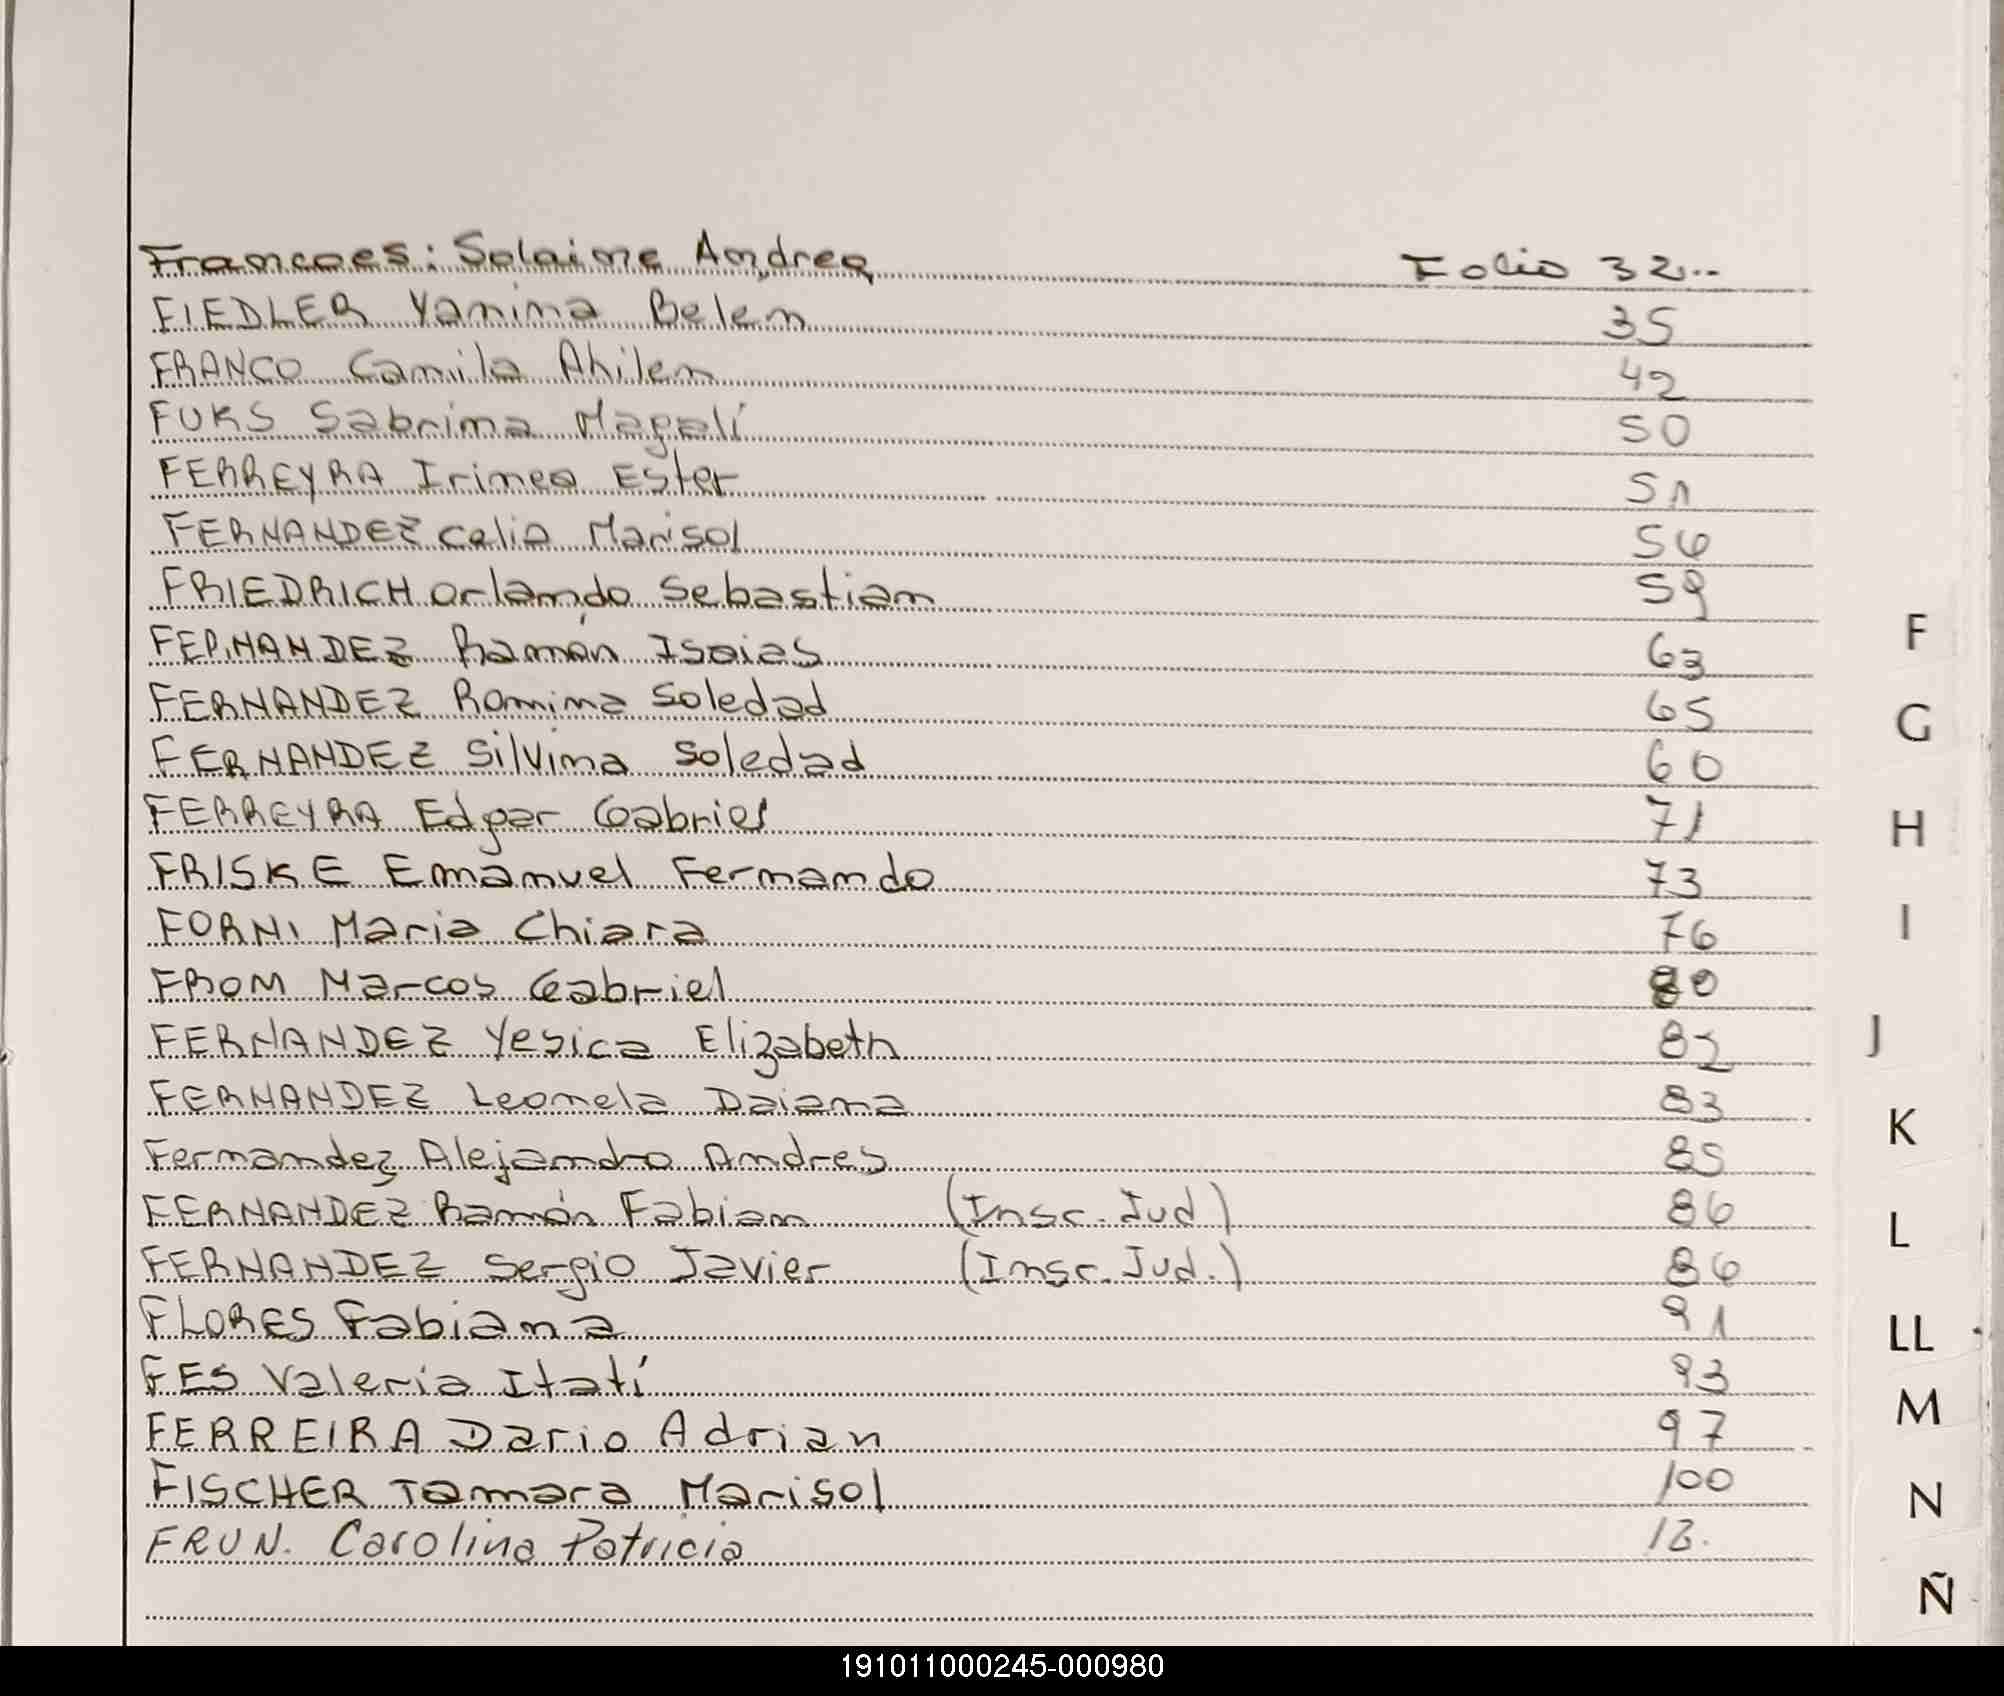 Francoes: Solaine Andrea Folio 32..
FIEDLER Yanina Belen 35
FRANCO Camila Ahilen 42
FUKS Sabrina Magalí 50
FERREYRA Irinea Ester 51
FERNANDEZ Celia Marisol 56
FRIEDRICH Orlando Sebastian 59
FERNANDEZ Ramón Isaias 63
FERNANDEZ Romina Soledad 65
FERNANDEZ Silvina Soledad 60
FERREYRA Edgar Gabriel 71
FRISKE Emanuel Fernando 73
FORNI Maria Chiara 76
FROM Marcos Gabriel 80
FERNANDEZ Yesica Elizabeth 82
FERNANDEZ Leonela Daiana 83
Fernandez Alejandro Andres 85
FERNANDEZ Ramón Fabian (Insc. Jud) 86
FERNANDEZ Sergio Javier (Insc. Jud.) 86
FLORES Fabiana 91
FES Valeria Itatí 93
FERREIRA Dario Adrian 97
FISCHER Tamara Marisol 100
FRUN. Carolina Patricia 13.
F
G
H
I
J
K
L
LL
M
N
Ñ
191011000245-000980